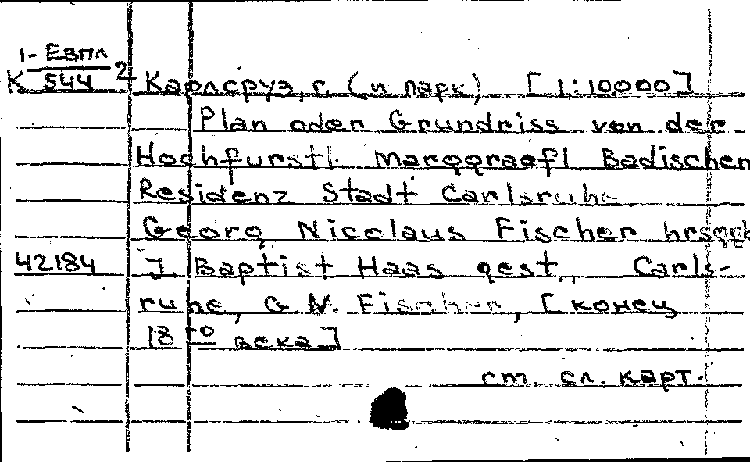 1-Евпл
К 544 2
Карлсруэ, г. (и парк) [1:10000]
Plan oder Grundriss von der
Hochfurstl. Marggraefl Badischen
Residenz Stadt Carlsruhe
Georg Nicolaus Fischer
42184 J. Baptist Haas gest., Carls-
ruhe, G. N. Fischer, [конец
18го века]
см. сл. карт.